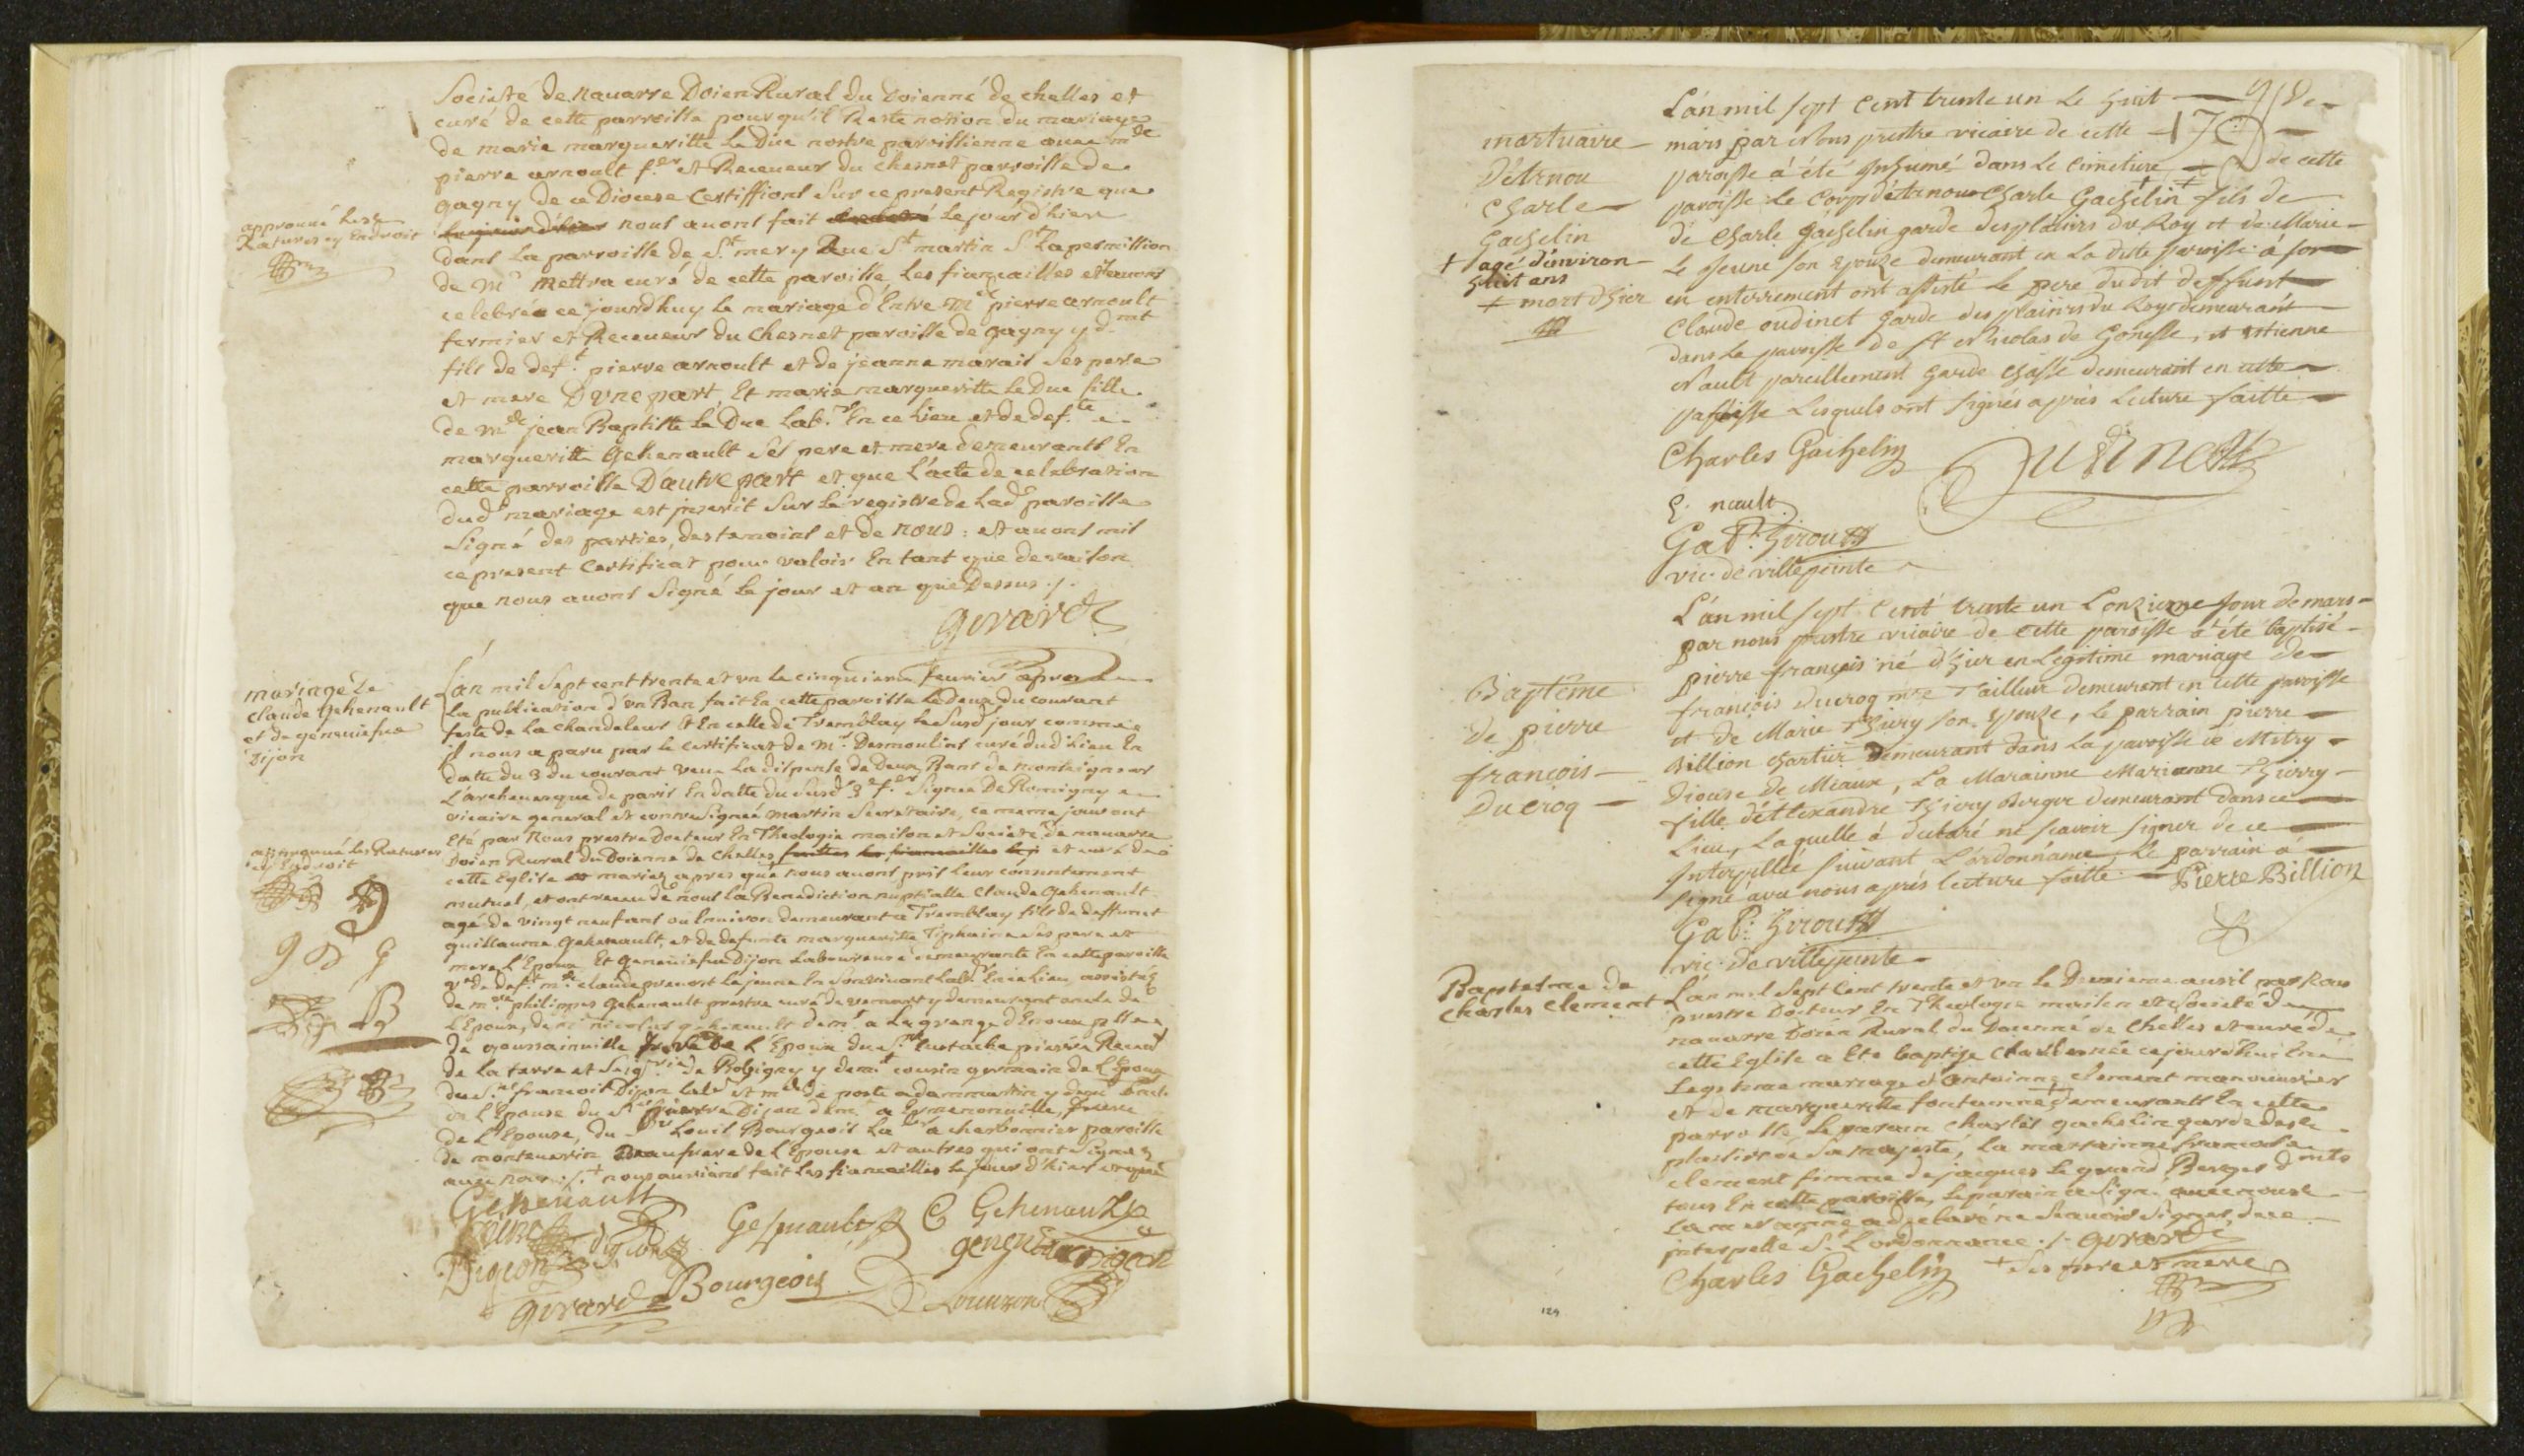 Societé de navarre Doien Rural du Doienné de chelles et
curé de cette parroisse pour qu'il Reste notion du mariage
de marie margueritte Le Duc nostre paroissienne avec m.de
pierre arnoult f.er et Receveur du chesnet parroisse de
gagny de ce Diocese Certiffions sur ce present Registre que
le jour d'hier nous avons fait le jour d'hier
dans la parroisse de St mery Rue St martin St la permission
de Mr mettra curé de cette paroisse les fiancailles et avons
celebrée ce jourdhuy le mariage d'Entre mde pierre arnoult
fermier et Receveur du Chesnet paroisse de gagny y dmt
fils de deft pierre arnoult et de jeanne marais ses pere
et mere D'une part, Et marie margueritte Le Duc fille
de mde jean Baptiste Le Duc Labr En ce lieu et de defte
margueritte Gehenault ses pere et mere demeurants En
cette parroisse D'autre part et que L'acte de celebration
dud mariage est inscrit sur le registre de Lad paroisse
signé des parties, des temoins et de nous : et avons mis
ce present Certificat pour valoir En tant que de raison
que nous avons signé le jour et an que Dessus ./.
gerard
approuvé les
Ratures cy Endroit
mariage de
Claude Gehenault
et de geneviefve
Dijon
L'an mil sept cent trente et un le cinquieme fevrier apres
la publication d'un Ban fait En cette paroisse le deux du courant
feste de La chandeleur Et En celle de Tremblay le susd jour comme
il nous a paru par le certificat de Mr Desmoulins curé dud lieu En
datte du 3 du courant veue La dispense de deux Bans de monseigneur
L'archevesque de paris En datte du susd 3e f.er signée De Romigny
vicaire general et contresignée martin Secretaire, ce meme jour ont
Eté par Nous prestre Docteur En Theologie maison et Societé de navarre
Doien Rural du Doienné de Chelles faittes les fiancailles et curé de
cette Eglise mariez apres que nous avons pris leur consentement
mutuel, et ont receu de nous la Benediction nuptialle Claude Gehenault
agé de vingt neuf ans ou Environ demeurant a Tremblay fils de deffunct
guillaume Gehenault, et de defunte margueritte Tiphaine ses pere et
mere L'Epoux Et Geneviefve Dijon Laboureuse demeurante En cette paroisse
ve de deft mde claude prevost le jeune En son vivant Labr En ce Lieu assistez
de mre philippes Gehenault prestre curé de vemars y demeurant oncle de
L'Epoux, de nicolas gehenault demt a La grange d'Enoux psse
de goussainville frere de L'Epoux du Sr Eustache pierre Recevr
de La terre et Seigrie de Bobigny y demt cousin germain de L'Epoux
du Sr francois Dijon labr et mde de poste a dammartin y demt oncle
de L'Epouse du Sr pierre Dijon demt a Ermenonville, frere
de L'Epouse, du Sr Louis Bourgeois Labr a charbonnier paroisse
de montevrin Beaufrere de L'Epouse et autres qui ont signez
avec nous ./. + nous avions fait les fiancailles le jour d'hier et que
approuvé les Ratures
cy Endroit
Gehenault
Gehenault C Gehenault
Dijon
genevieve dijeon
gerard Bourgeois
L'an mil sept cent trente un Le huit de
mars par Nous prestre vicaire de cette
paroisse à été Inhumé dans le Cimetiere de cette
paroisse le Corps d'Arnou Charle Gachelin fils de
de Charle Gachelin garde des plaisirs du Roy et de Marie
Le Jeune son Epouze demeurant en La ditte paroisse à son
en enterrement ont assisté le pere du dit deffunt
Claude oudinet garde des plaisirs du Roy demeurant
dans La paroisse de St Nicolas de Gonesse, et Estienne
Nault pareillement garde chasse demeurant en cette
paroisse Lesquels ont signés après Lecture faitte
mortuaire
D'Arnou
Charle
Gachelin
+ agé d'environ
huit ans
+ mort d'hier
Charles Gachelin
oudinet
E. nault
Gab: Giroust
vic. de villepinte
L'an mil sept Cent trente un L'onzieme jour de mars
par nous prestre vicaire de cette paroisse a été baptisé
pierre françois né d'hier en Legitime mariage de
françois ducroq mre Tailleur demeurant en cette paroisse
et de Marie Thiery son Epouze, le parrain pierre
Billion chartier demeurant dans La paroisse de Mitry
Diocese de Meaux, La Marainne Marianne Thierry
fille d'Alexandre Thiery Berger demeurant dans ce
Lieu, Laquelle à declaré ne sçavoir signer de ce
Interpellée suivant L'ordonnance, le parrain à
signé avec nous après lecture faitte
Baptême
de pierre
françois
Ducroq
Pierre Billion
Gab: Giroust
vic. de villepinte
Baptesme de
Charles Clement
L'an mil sept Cent trente et un le Deuxieme avril par Nous
prestre Docteur En Theologie maison et Societé de
navarre Doien Rural du Doienné de Chelles et curé de
cette Eglise a Eté baptisé Charles née ce jourd'hui En
Legitime mariage d'antoinne Clement manouvrier
et de margueritte fontainne demeurants En cette
parroisse Le parain Charles gachelin garde des
plaisirs de Sa majesté, La marainne francoise
clement femme de jacques Le grand Berger dmts
tous En cette paroisse, Le parain a signé avec nous
La marainne a declaré ne Scavoir signer de ce
interpellé St L'ordonnance ./. gerard
Charles Gachelin + ses pere et mere
124